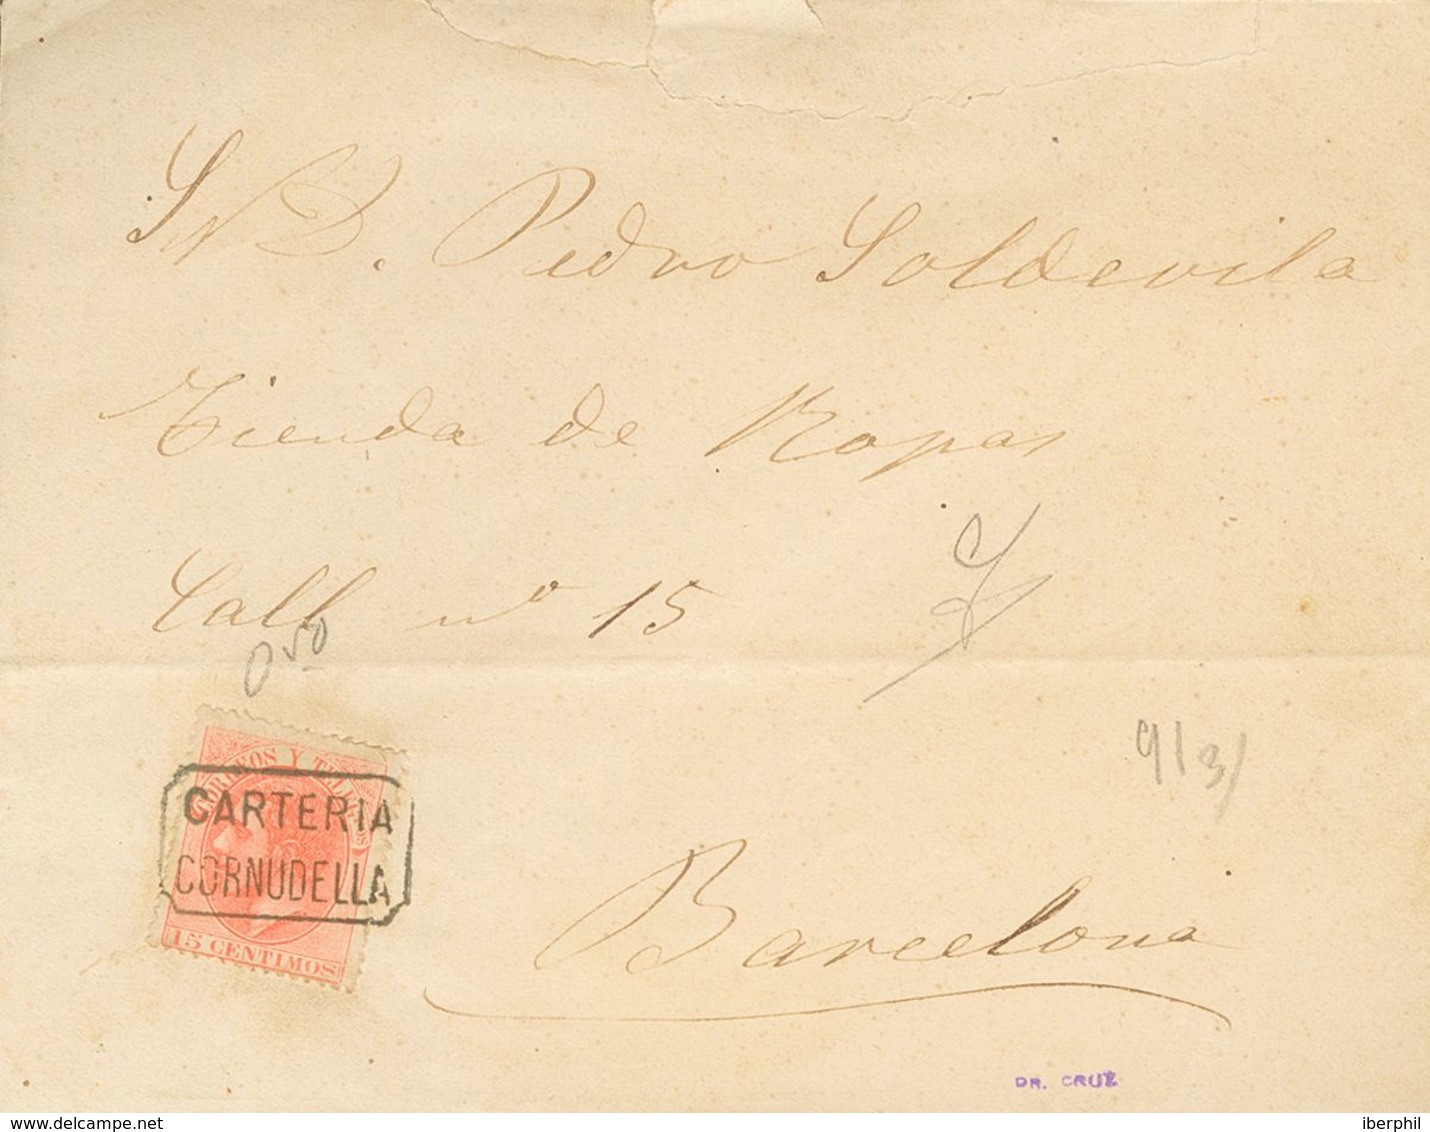 Sr D. Pedro Soldevila
Tienda de Ropas
Call nº 15
0 50
9/3/
CORREOS Y TELEGRAFOS
CARTERIA
CORNUDELLA
15 CENTIMOS
Barcelona
DR. CRUZ
delcampe.net
iberphil